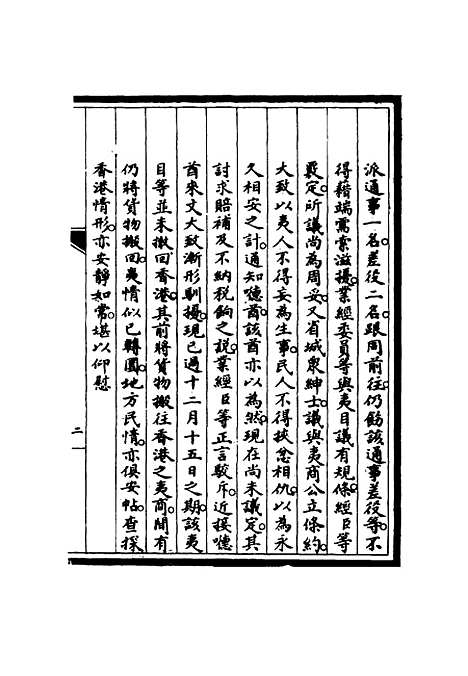 派通事一名差役二名跟周前往仍飭該通事差役等不
得藉端需索滋擾業經委員等與夷目議有規條經臣等
覈定所議尚為周妥又省城眾紳士議與夷商公立條約
大致以夷人不得妄為生事民人不得挾忿相仇以為永
久相安之計通知噫酋該酋亦以為然現在尚未議定其
討求賠補及不納稅餉之說業經臣等正言駁斥近接噫
酋來文大致漸形馴擾現已過十二月十五日之期該夷
目等並未撤回香港其前將貨物搬往香港之夷商間有
仍將貨物搬回夷情似已轉圜地方民情亦俱安帖查探
香港情形亦安靜如常堪以仰慰
二